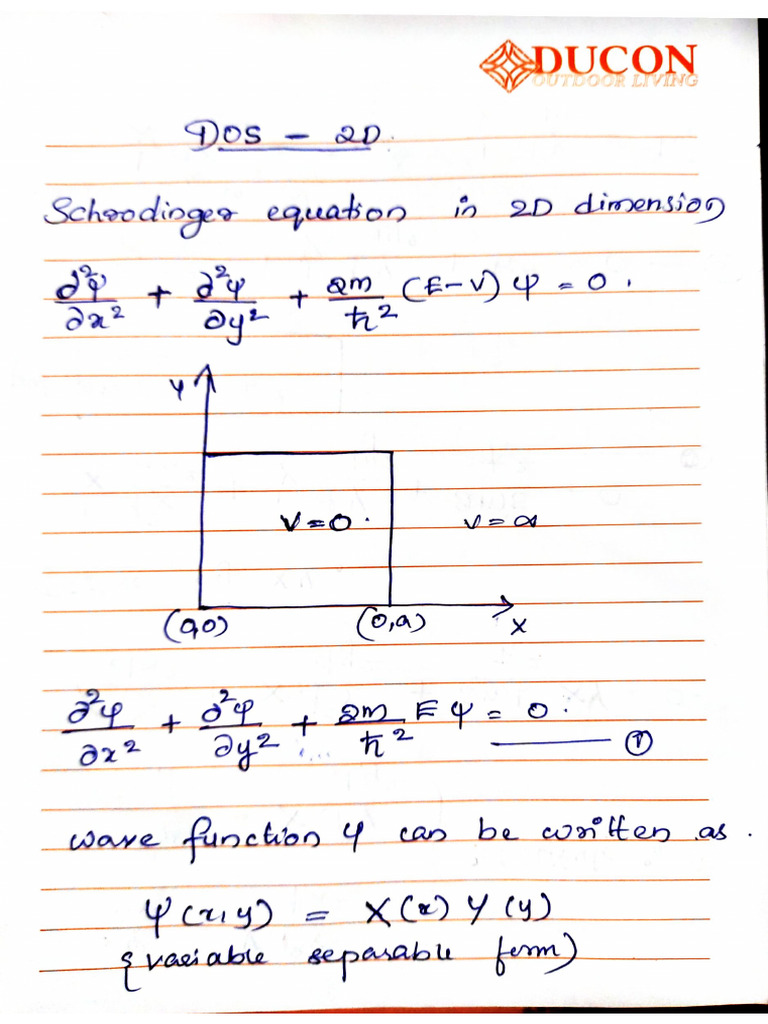 DUCON
OUTDOOR LIVING
DOS - 2D.
Schrodinger equation in 2D dimension
∂²ψ/∂x² + ∂²ψ/∂y² + 2m/ħ² (E-V) ψ = 0.
y
V=0.
V=∞
(0,0) (0,a) x
∂²ψ/∂x² + ∂²ψ/∂y² + 2m/ħ² E ψ = 0. ——— ①
wave function ψ can be written as.
ψ(x,y) = X(x) Y(y)
{variable separable form)